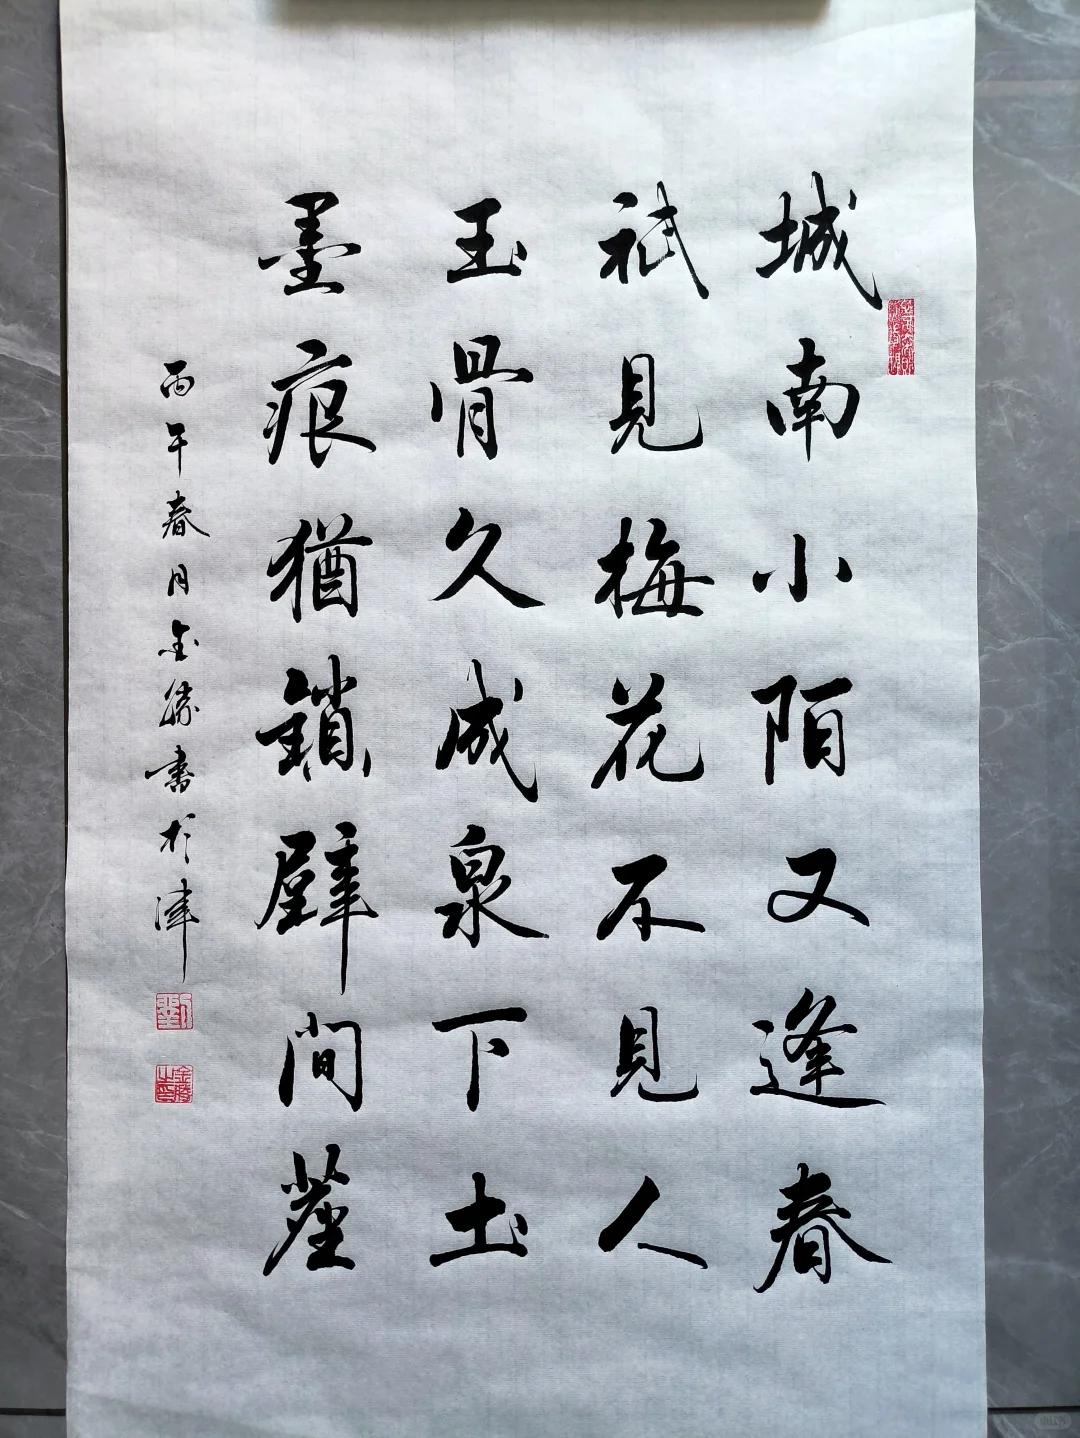 城南小陌又逢春
祇見梅花不見人
玉骨久成泉下土
墨痕猶鎖壁間塵
丙午春月金勝書於津
劉
金勝之印